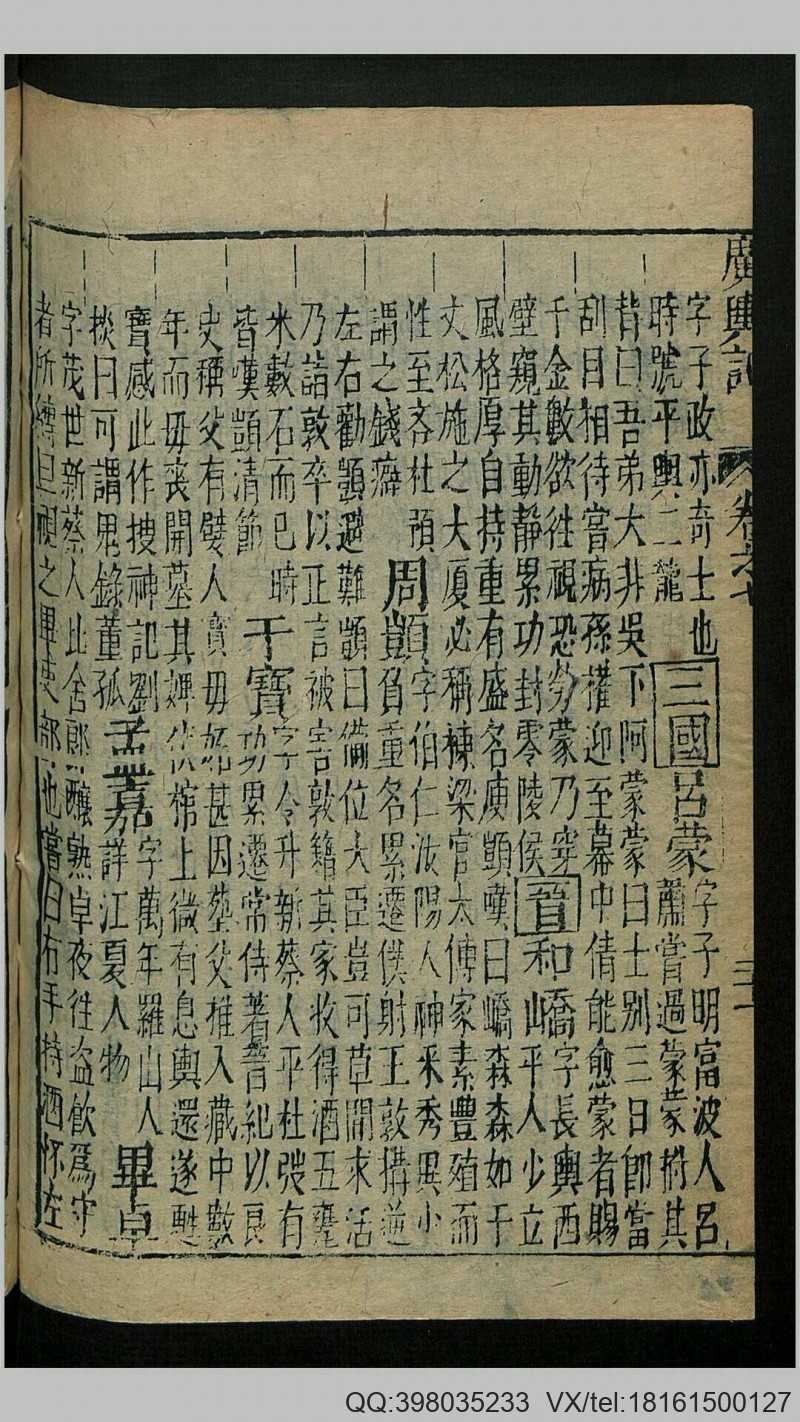 廣輿記 卷之十 三十一
字子政亦奇士也 三國 呂蒙 字子明富波人呂
時號平輿二龍 蕭嘗過蒙蒙拊其
背曰吾弟大非吳下阿蒙蒙曰士别三日即當
刮目相待嘗病孫權迎至幕中倩能愈蒙者賜
千金數欲往視恐勞蒙乃穿
壁窺其動靜累功封零陵侯 晉 和嶠 字長輿西
山平人少立
風格厚自持重有盛名庾顗嘆曰嶠森森如千
丈松施之大廈必稱棟梁官太傅家素豐殖而
性至吝杜預
謂之錢癖 周顗 字伯仁汝陽人神采秀異小
負重名累遷僕射王敦搆逆
左右勸顗避難顗曰備位大臣豈可草間求活
乃詣敦卒以正言被害敦籍其家收得酒五甕
米數石而已時
皆嘆顗清節 干寶 字令升新蔡人平杜弢有
功累遷常侍著晉紀以良
史稱父有嬖人寶母妬甚因塟父推入藏中數
年而母丧開墓其婢伏棺上微有息輿還遂甦
寶感此作搜神記劉
惔曰可謂鬼錄董狐 孟嘉 字萬年羅山人
詳江夏人物 畢卓
字茂世新蔡人比舍郎釀熟卓夜往盗飲爲守
者所縛旦視之畢吏部也嘗曰右手持酒杯左